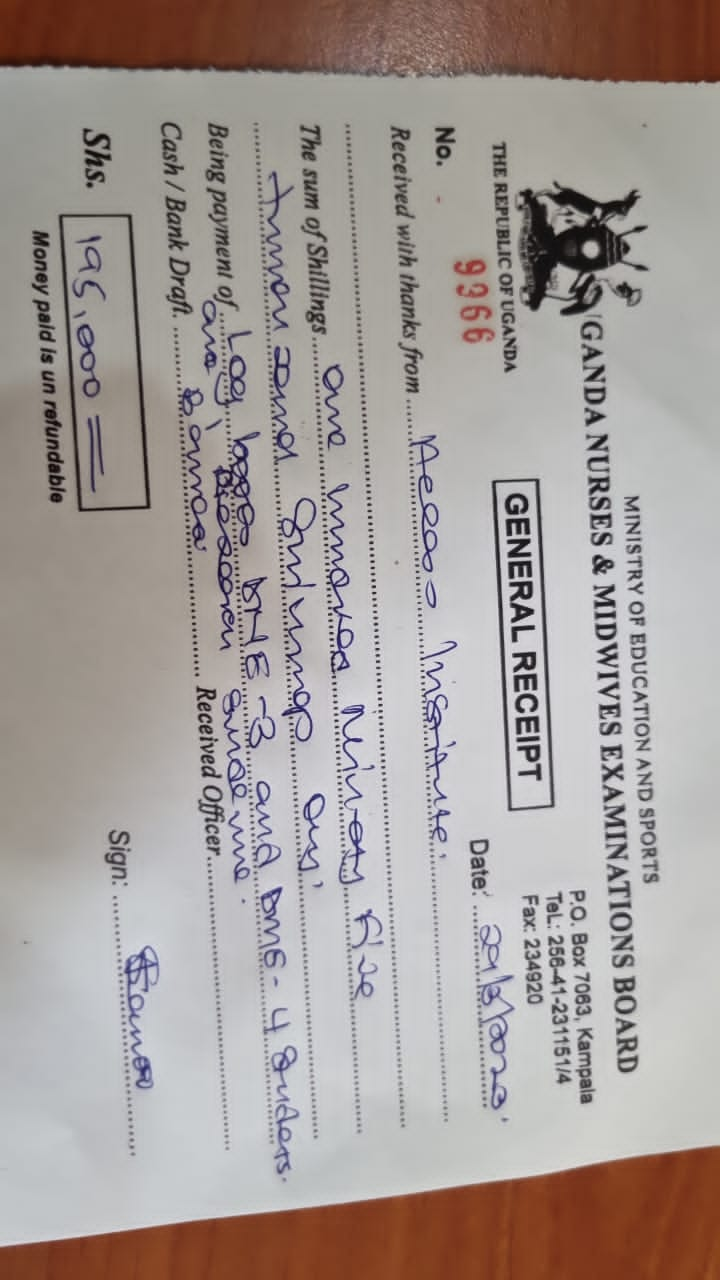 MINISTRY OF EDUCATION AND SPORTS
UGANDA NURSES & MIDWIVES EXAMINATIONS BOARD
P.O. Box 7063, Kampala
TeL: 256-41-231151/4
Fax: 234920
THE REPUBLIC OF UGANDA
GENERAL RECEIPT
No. 9366
Date: 29/8/2023
Received with thanks from Access Institute.
The sum of Shillings one hundred Ninety five
thousand Shillings only.
Being payment of Log books DNE-3 and DME-4 Students.
and
Cash / Bank Draft. Received Officer
Shs. 195,000=
Sign:
Money paid is un refundable